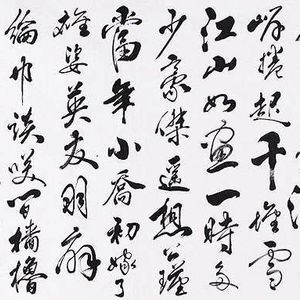 岸捲起千堆雪
江山如畫一時多
少豪傑遙想公瑾
當年小喬初嫁了
雄姿英发羽扇
綸巾談笑間檣櫓